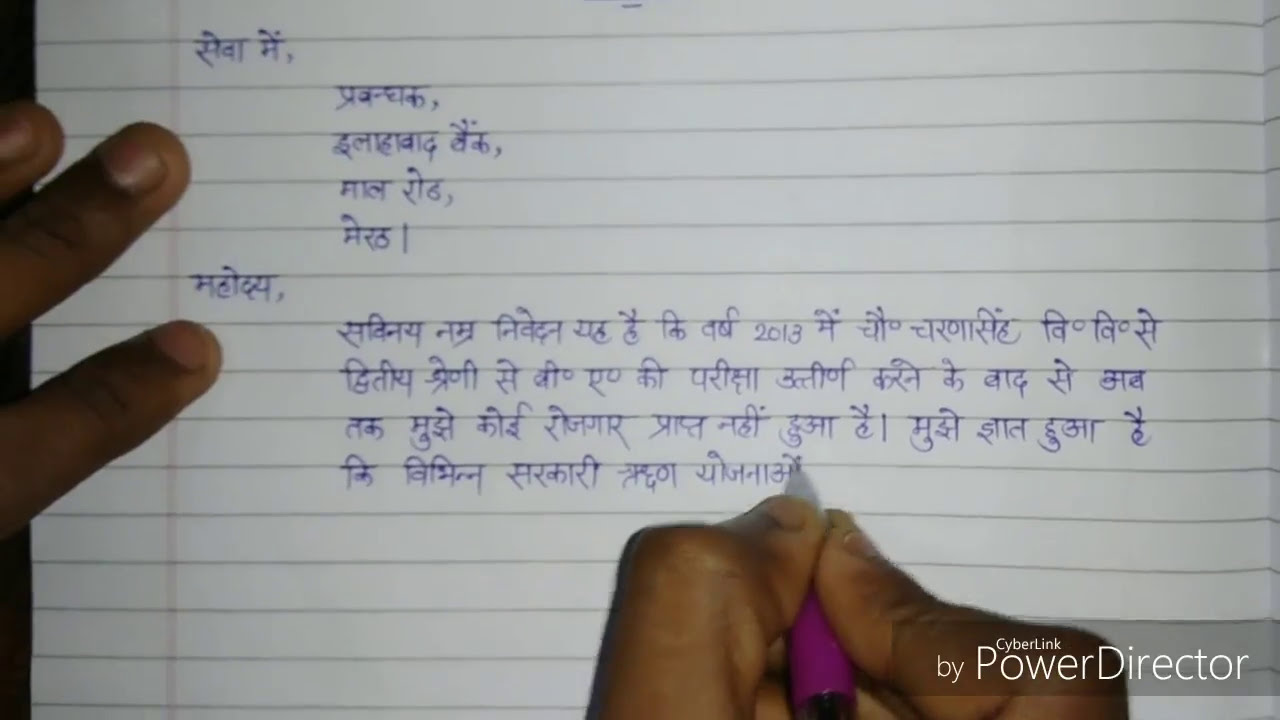 सेवा में,
प्रबन्धक,
इलाहाबाद बैंक,
माल रोड,
मेरठ।
महोदय,
सविनय नम्र निवेदन यह है कि वर्ष 2013 में चौ० चरणसिंह वि० वि० से
द्वितीय श्रेणी से बी० ए० की परीक्षा उत्तीर्ण करने के बाद से अब
तक मुझे कोई रोजगार प्राप्त नहीं हुआ है। मुझे ज्ञात हुआ है
कि विभिन्न सरकारी ऋण योजनाओं
CyberLink
by PowerDirector